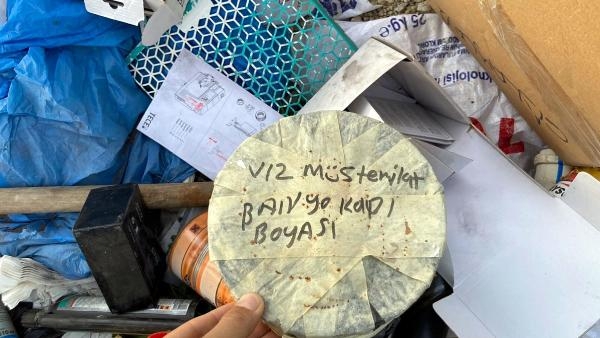 V12 MüSteMilat
BANyo KAPI
BOYASI
TECE
25 kg.e